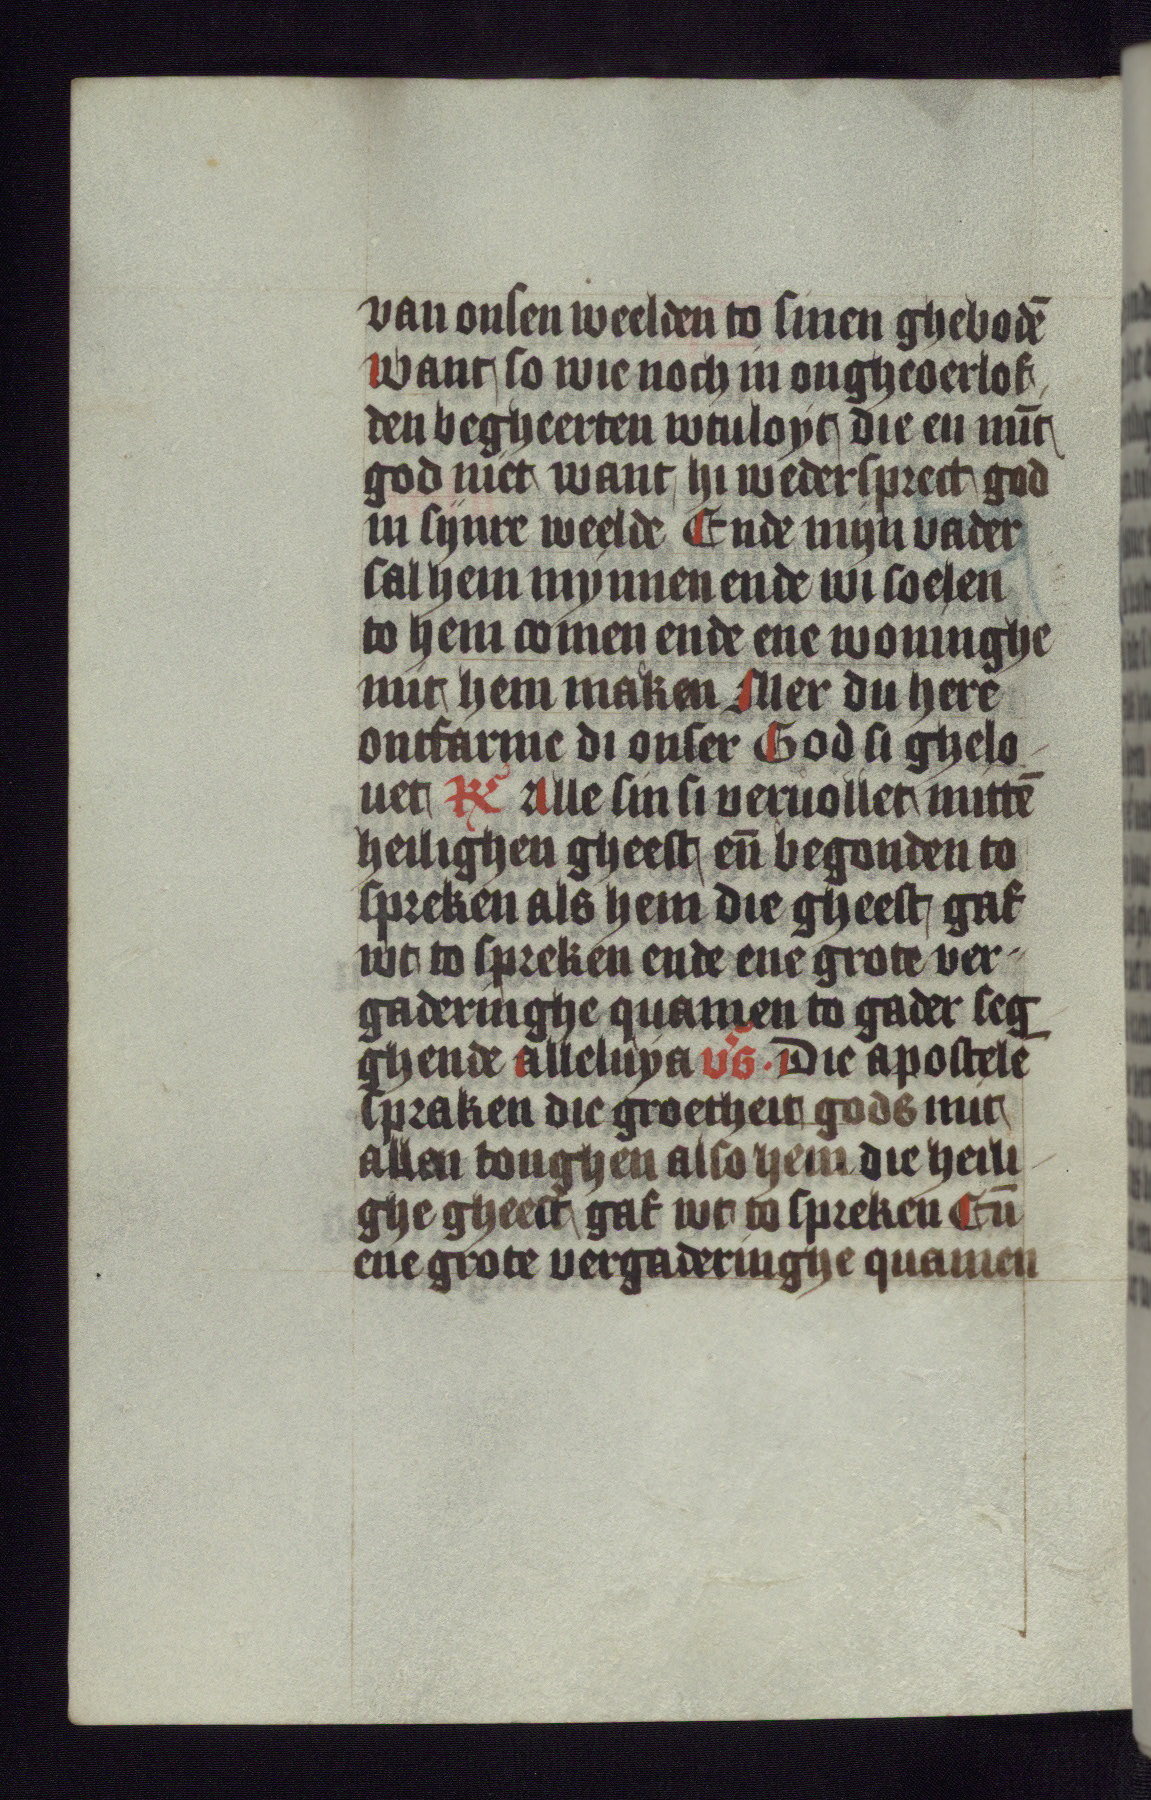 van onsen weelden to sinen ghebodē
Want so wie noch in ongheoerlof
den begheerten wtuloyt die en mīt
god niet want hi wedersprect god
in sijnre weelde Ende mijn vader
sal hem mynnen ende wi soelen
to hem comen ende ene woninghe
mit hem maken Mer du here
ontfarme di onser God si ghelo
uet R̄ Alle sin si veruollet mittē
heilighen gheest en̄ begonden to
spreken als hem die gheest gaf
wt to spreken ende ene grote ver
gaderinghe quamen to gader seg
ghende alleluya v̄s. Die apostele
spraken die groetheit gods mit
allen tonghen also hem die heili
ghe gheest gaf wt to spreken En̄
ene grote vergaderinghe quamen